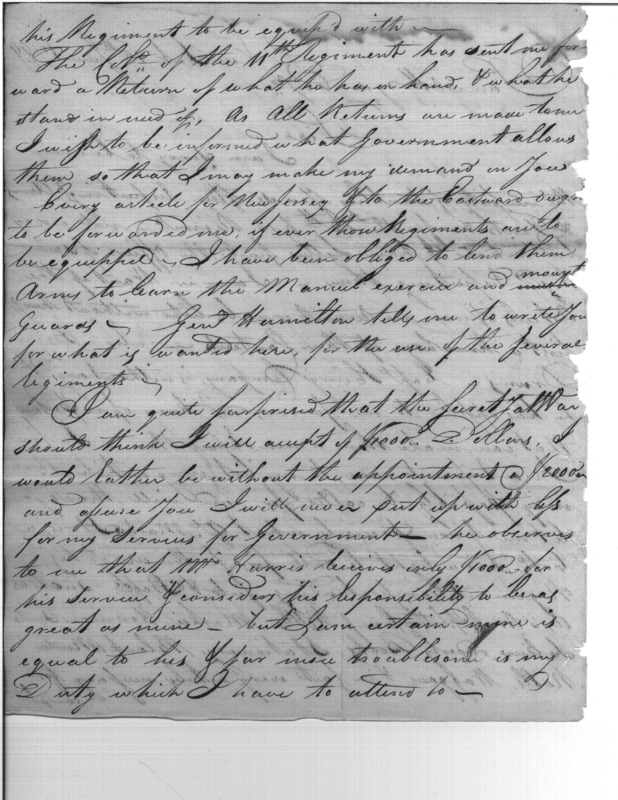 his Regiment to be equip'd with —
The Col.º of the 11th Regiment has sent me for
ward a Return of what he has on hand, & what he
stands in need of, As All Returns are made to me
I wish to be informed what Government allows
them so that I may make my demand on You
Every article for New Jersey & to the Eastward ough
to be forwarded me, if ever those Regiments are to
be equipped — I have been obliged to lend them
Arms to learn the Manual exercise and mount
Guards — Genl Hamilton tells me to write You
for what is wanted here, for the use of the several
regiments —
I am quite surprised that the Secret.y at War
should think I will accept of $1000. Dollars, I
would Rather be without the appointment
and assure You I will never put up with less
for my services for Government — he observes
to me that Mr Harris receives only $1000. for
his Service & considers his Responsibility to be as
great as mine — but I am certain mine is
equal to his & far more troublesome is my
Duty which I have to attend to —